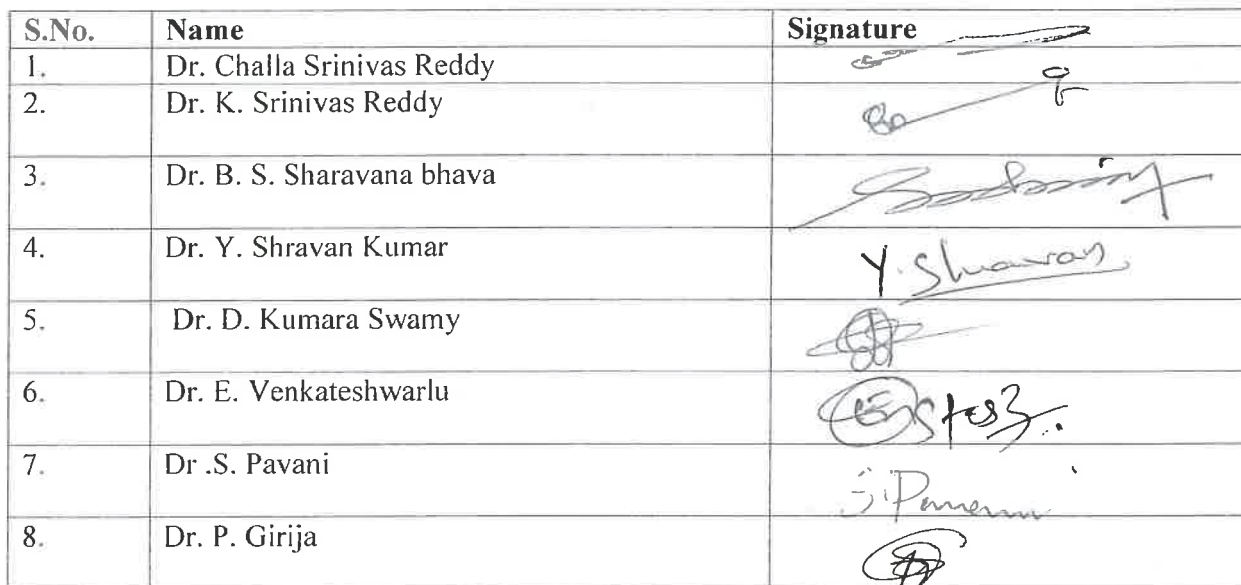 S.No. Name Signature
1. Dr. Challa Srinivas Reddy
2. Dr. K. Srinivas Reddy
3. Dr. B. S. Sharavana bhava
4. Dr. Y. Shravan Kumar Y. Shravan
5. Dr. D. Kumara Swamy
6. Dr. E. Venkateshwarlu
7. Dr .S. Pavani S. Pavani
8. Dr. P. Girija